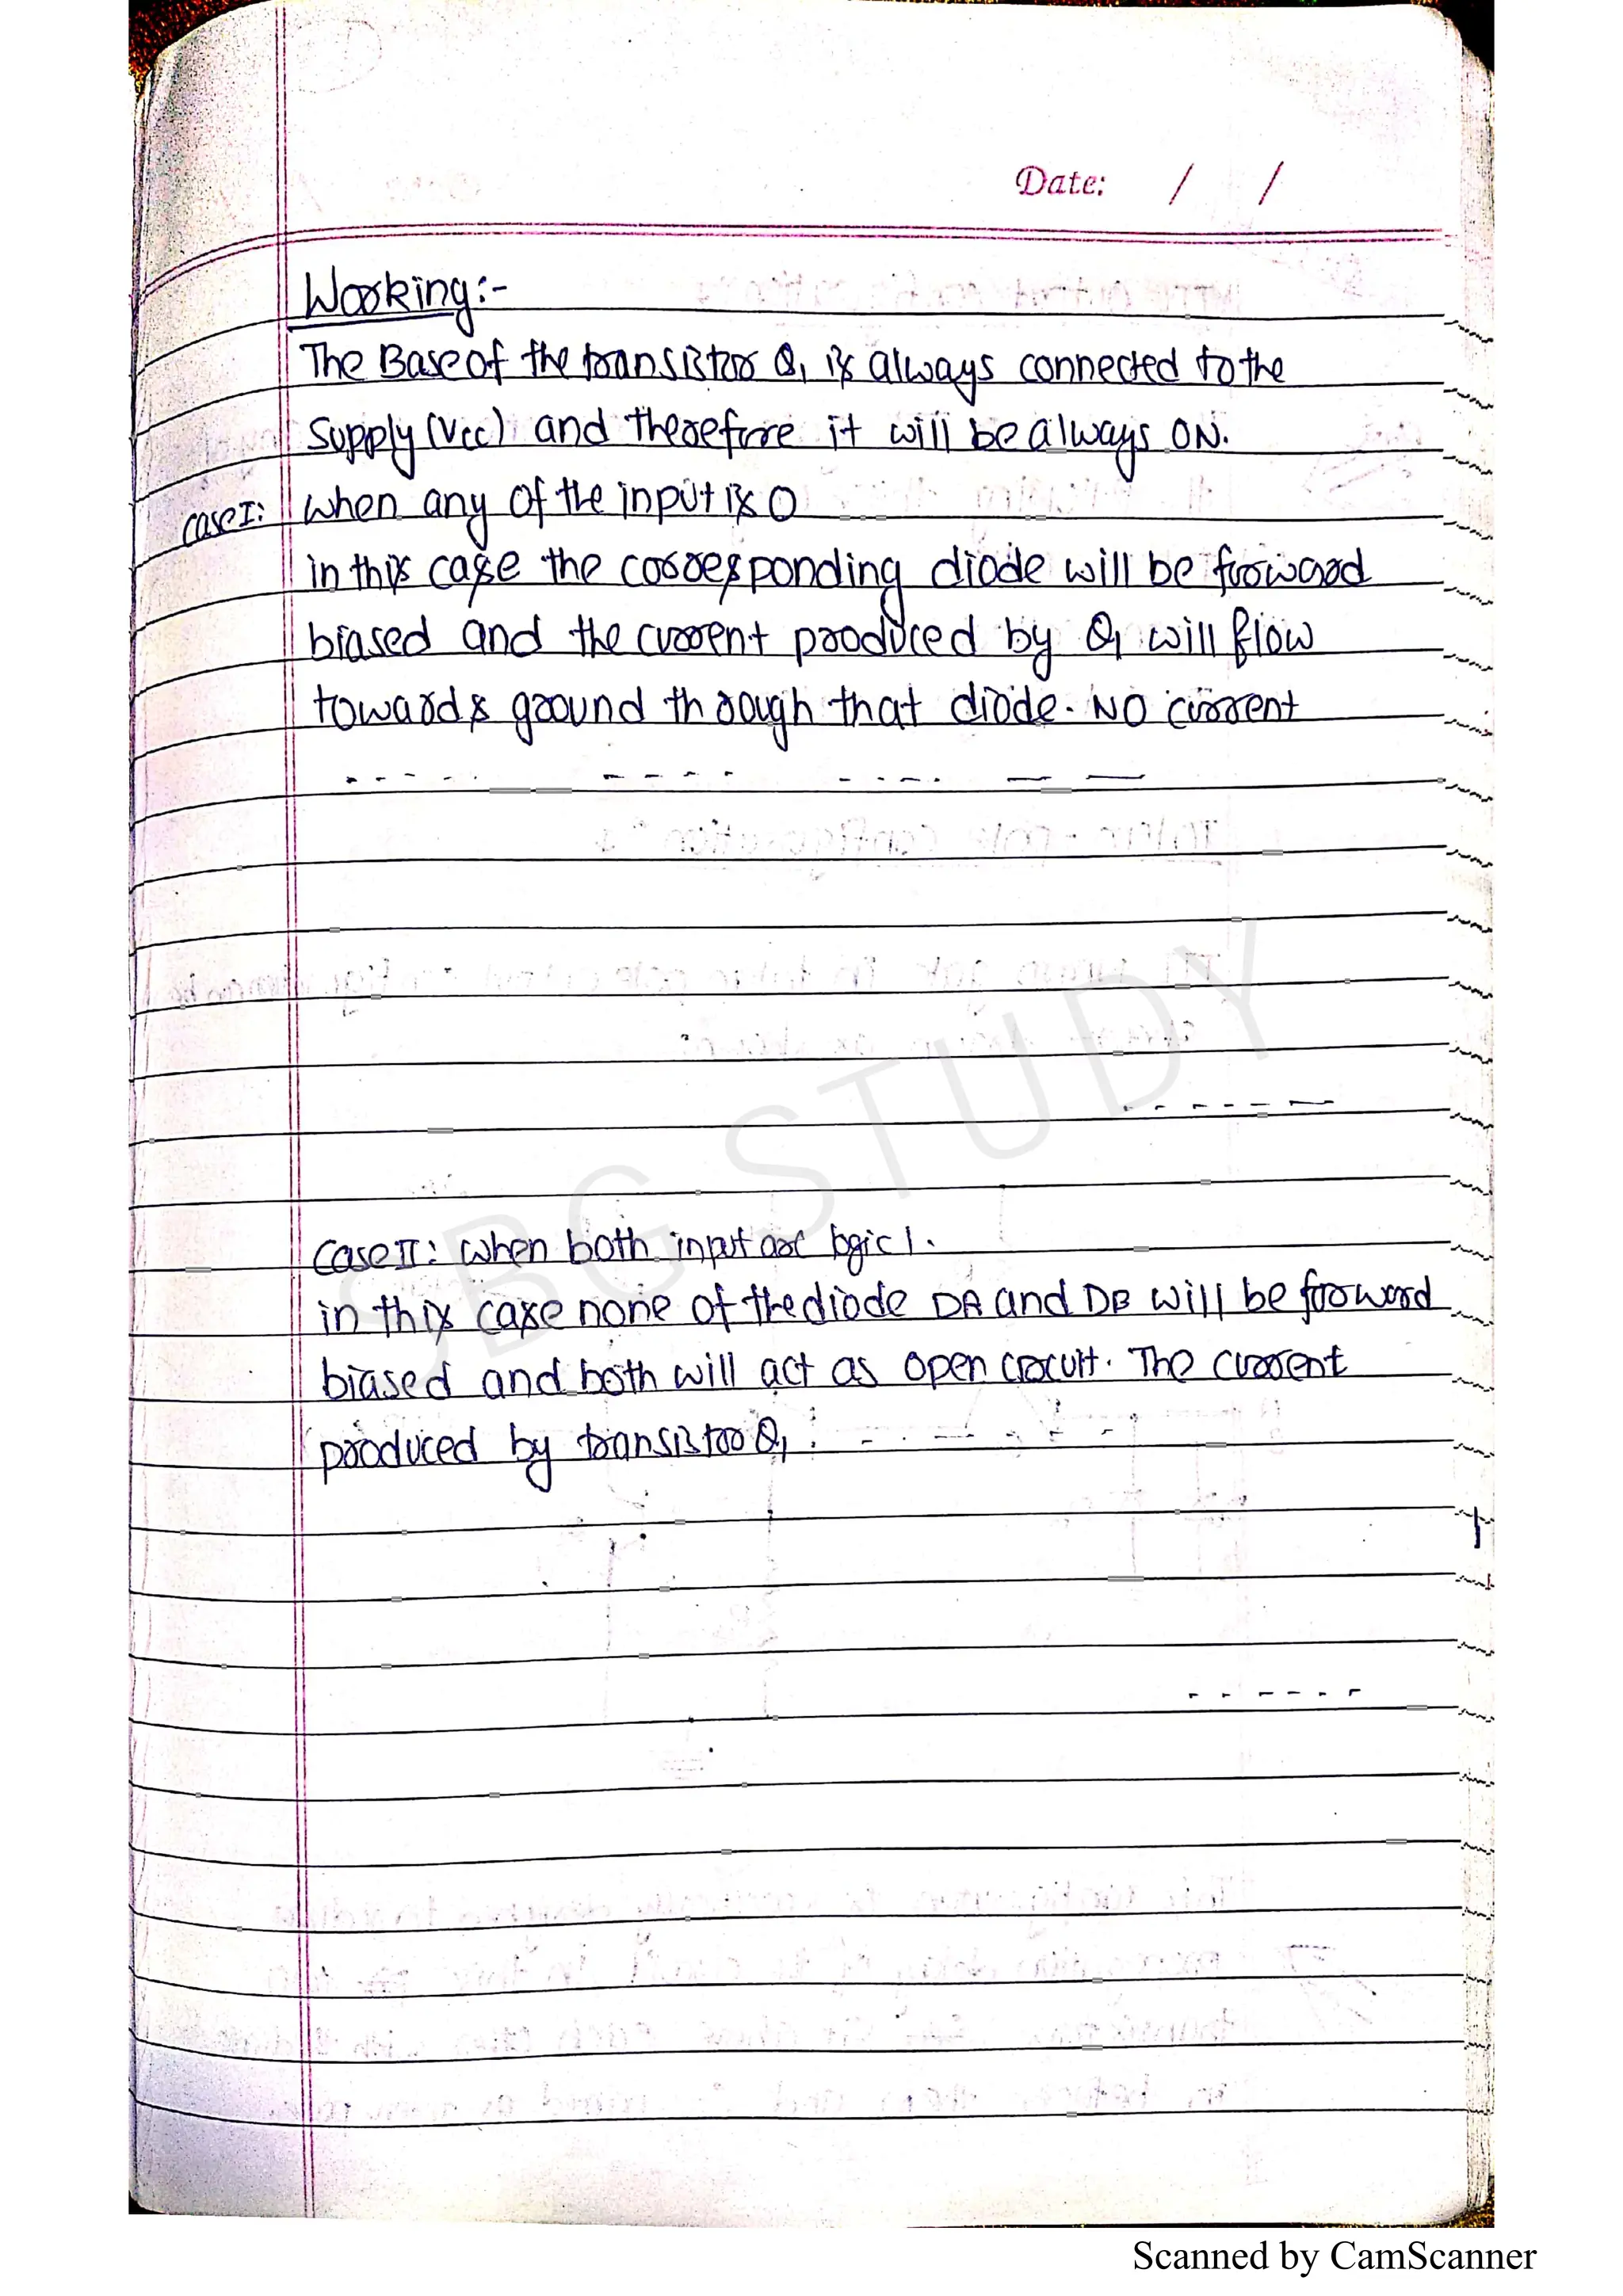 Date: / /
Working:-
The Base of the transistor Q1 is always connected to the
supply (Vcc) and therefore it will be always ON.
case I: when any of the input is 0
in this case the corresponding diode will be forward
biased and the current produced by Q1 will flow
towards ground through that diode. NO current
Case II: when both input are logic 1.
in this case none of the diode DA and DB will be forward
biased and both will act as open circuit. The current
produced by transistor Q1
SBG STUDY
Scanned by CamScanner